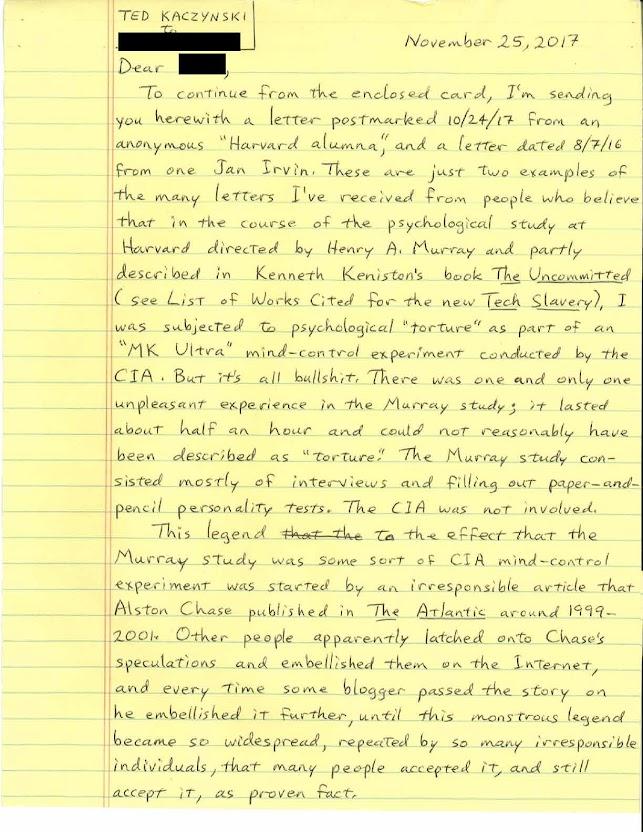 TED KACZYNSKI
to
November 25, 2017
Dear ,
To continue from the enclosed card, I'm sending
you herewith a letter postmarked 10/24/17 from an
anonymous "Harvard alumna", and a letter dated 8/7/16
from one Jan Irvin. These are just two examples of
the many letters I've received from people who believe
that in the course of the psychological study at
Harvard directed by Henry A. Murray and partly
described in Kenneth Keniston's book The Uncommitted
(see List of Works Cited for the new Tech Slavery), I
was subjected to psychological "torture" as part of an
"MK Ultra" mind-control experiment conducted by the
CIA. But it's all bullshit. There was one and only one
unpleasant experience in the Murray study; it lasted
about half an hour and could not reasonably have
been described as "torture." The Murray study con-
sisted mostly of interviews and filling out paper-and-
pencil personality tests. The CIA was not involved.
This legend that the to the effect that the
Murray study was some sort of CIA mind-control
experiment was started by an irresponsible article that
Alston Chase published in The Atlantic around 1999-
2001. Other people apparently latched onto Chase's
speculations and embellished them on the Internet,
and every time some blogger passed the story on
he embellished it further, until this monstrous legend
became so widespread, repeated by so many irresponsible
individuals, that many people accepted it, and still
accept it, as proven fact.